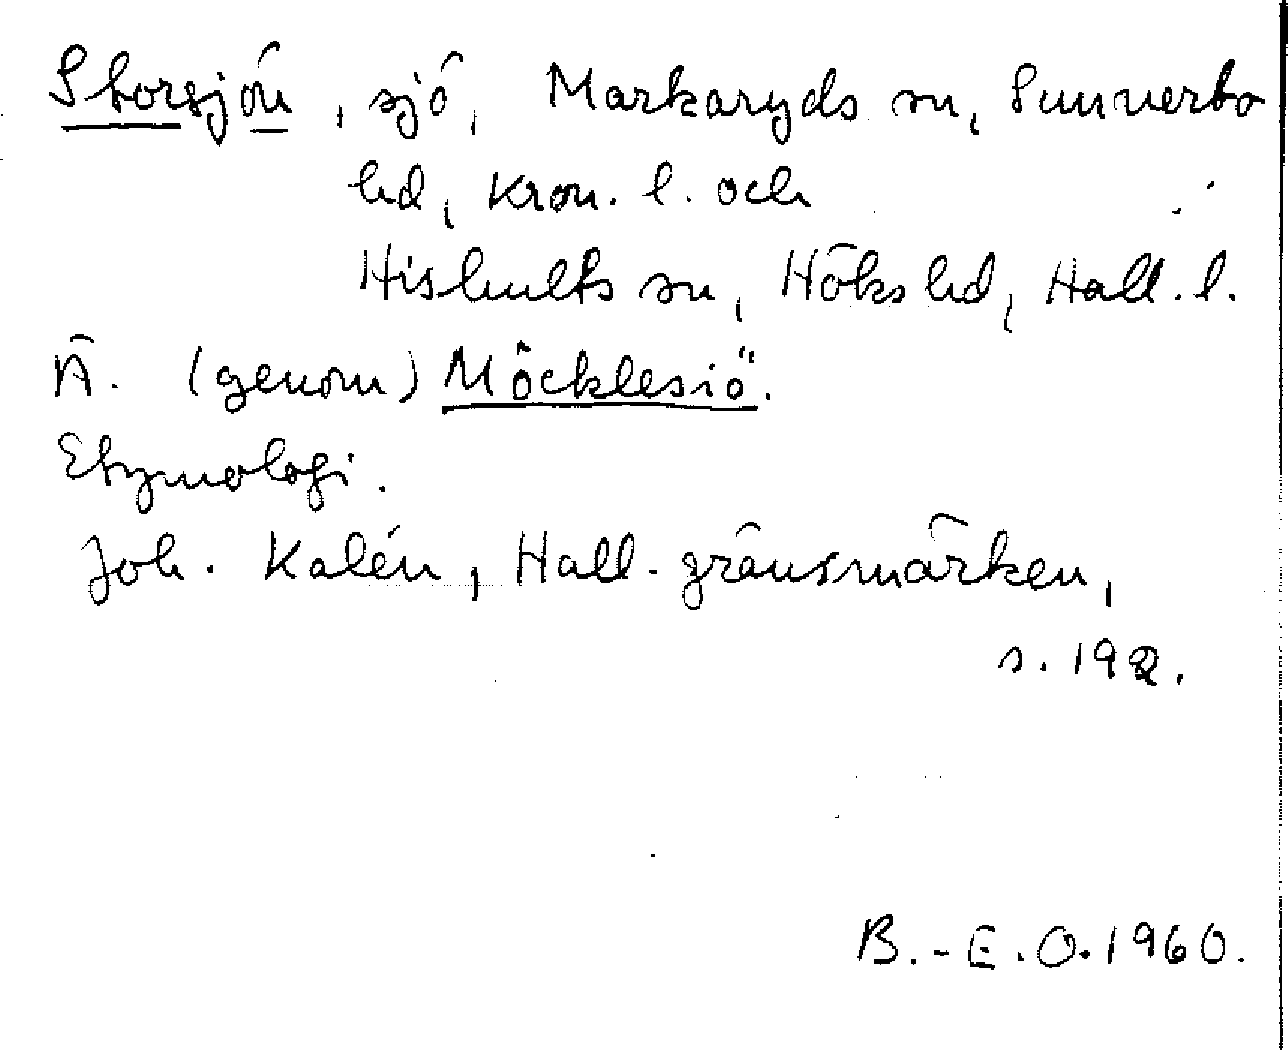 Storsjön, sjö, Markaryds sn, Sunnerbo
hd, Kron. l. och
Hishults sn, Höks hd, Hall. l.
Ä. (genom) Möcklesiö.
Etymologi.
Joh. Kalén, Hall. gränsmärken,
s. 192.
B.-E. O. 1960.